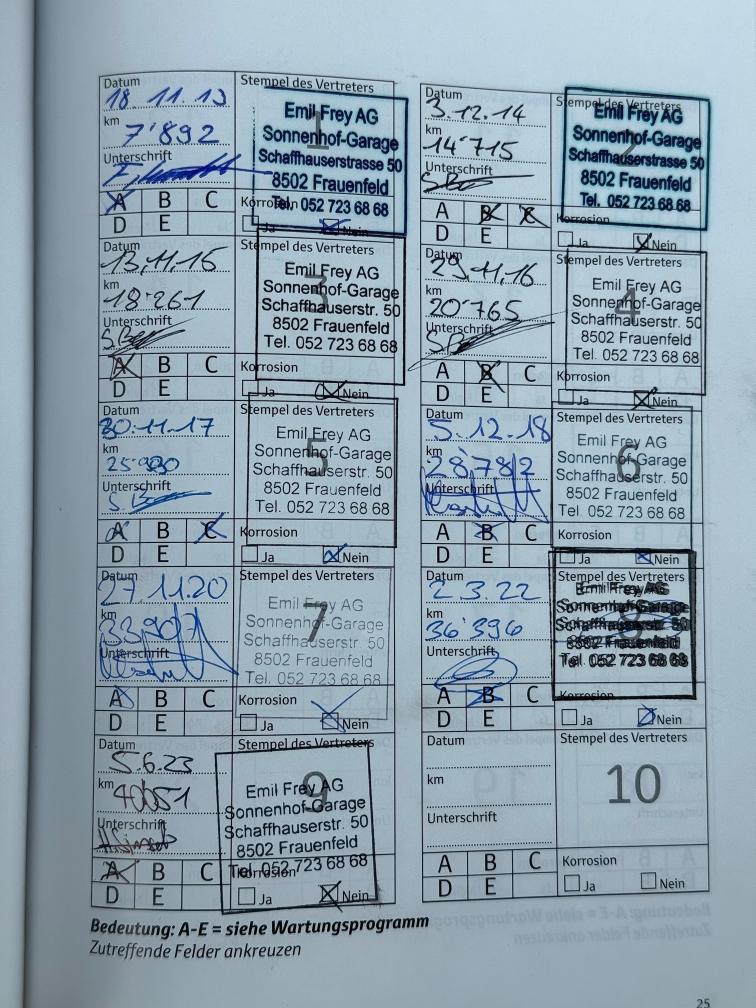 Datum
18.11.13
km
7'892
Unterschrift
Stempel des Vertreters
1
Emil Frey AG
Sonnenhof-Garage
Schaffhauserstrasse 50
8502 Frauenfeld
Tel. 052 723 68 68
A B C
D E
Korrosion
Ja Nein
Datum
3.12.14
km
14'715
Unterschrift
Stempel des Vertreters
2
Emil Frey AG
Sonnenhof-Garage
Schaffhauserstrasse 50
8502 Frauenfeld
Tel. 052 723 68 68
A B C
D E
Korrosion
Ja Nein
Datum
13.11.15
km
18'261
Unterschrift
Stempel des Vertreters
3
Emil Frey AG
Sonnenhof-Garage
Schaffhauserstr. 50
8502 Frauenfeld
Tel. 052 723 68 68
A B C
D E
Korrosion
Ja Nein
Datum
29.11.16
km
20'765
Unterschrift
Stempel des Vertreters
4
Emil Frey AG
Sonnenhof-Garage
Schaffhauserstr. 50
8502 Frauenfeld
Tel. 052 723 68 68
A B C
D E
Korrosion
Ja Nein
Datum
30.11.17
km
Unterschrift
Stempel des Vertreters
5
Emil Frey AG
Sonnenhof-Garage
Schaffhauserstr. 50
8502 Frauenfeld
Tel. 052 723 68 68
A B C
D E
Korrosion
Ja Nein
Datum
5.12.18
km
28'782
Unterschrift
Stempel des Vertreters
6
Emil Frey AG
Sonnenhof-Garage
Schaffhauserstr. 50
8502 Frauenfeld
Tel. 052 723 68 68
A B C
D E
Korrosion
Ja Nein
Datum
27.11.20
km
33'907
Unterschrift
Stempel des Vertreters
7
Emil Frey AG
Sonnenhof-Garage
Schaffhauserstr. 50
8502 Frauenfeld
Tel. 052 723 68 68
A B C
D E
Korrosion
Ja Nein
Datum
2.3.22
km
36'396
Unterschrift
Stempel des Vertreters
Emil Frey AG
Sonnenhof-Garage
Schaffhauserstr. 50
8502 Frauenfeld
Tel. 052 723 68 68
A B C
D E
Korrosion
Ja Nein
Datum
5.6.23
km
40'051
Unterschrift
Stempel des Vertreters
9
Emil Frey AG
Sonnenhof-Garage
Schaffhauserstr. 50
8502 Frauenfeld
Tel. 052 723 68 68
A B C
D E
Korrosion
Ja Nein
Datum
km
Unterschrift
Stempel des Vertreters
10
A B C
D E
Korrosion
Ja Nein
Bedeutung: A-E = siehe Wartungsprogramm
Zutreffende Felder ankreuzen
25